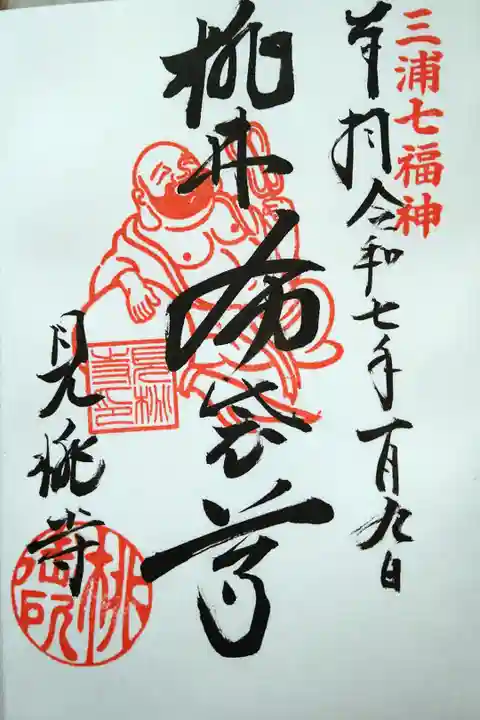 三浦七福神
奉拝 令和七年一月九日
桃林布袋尊
見桃寺
見桃寺印
桃院